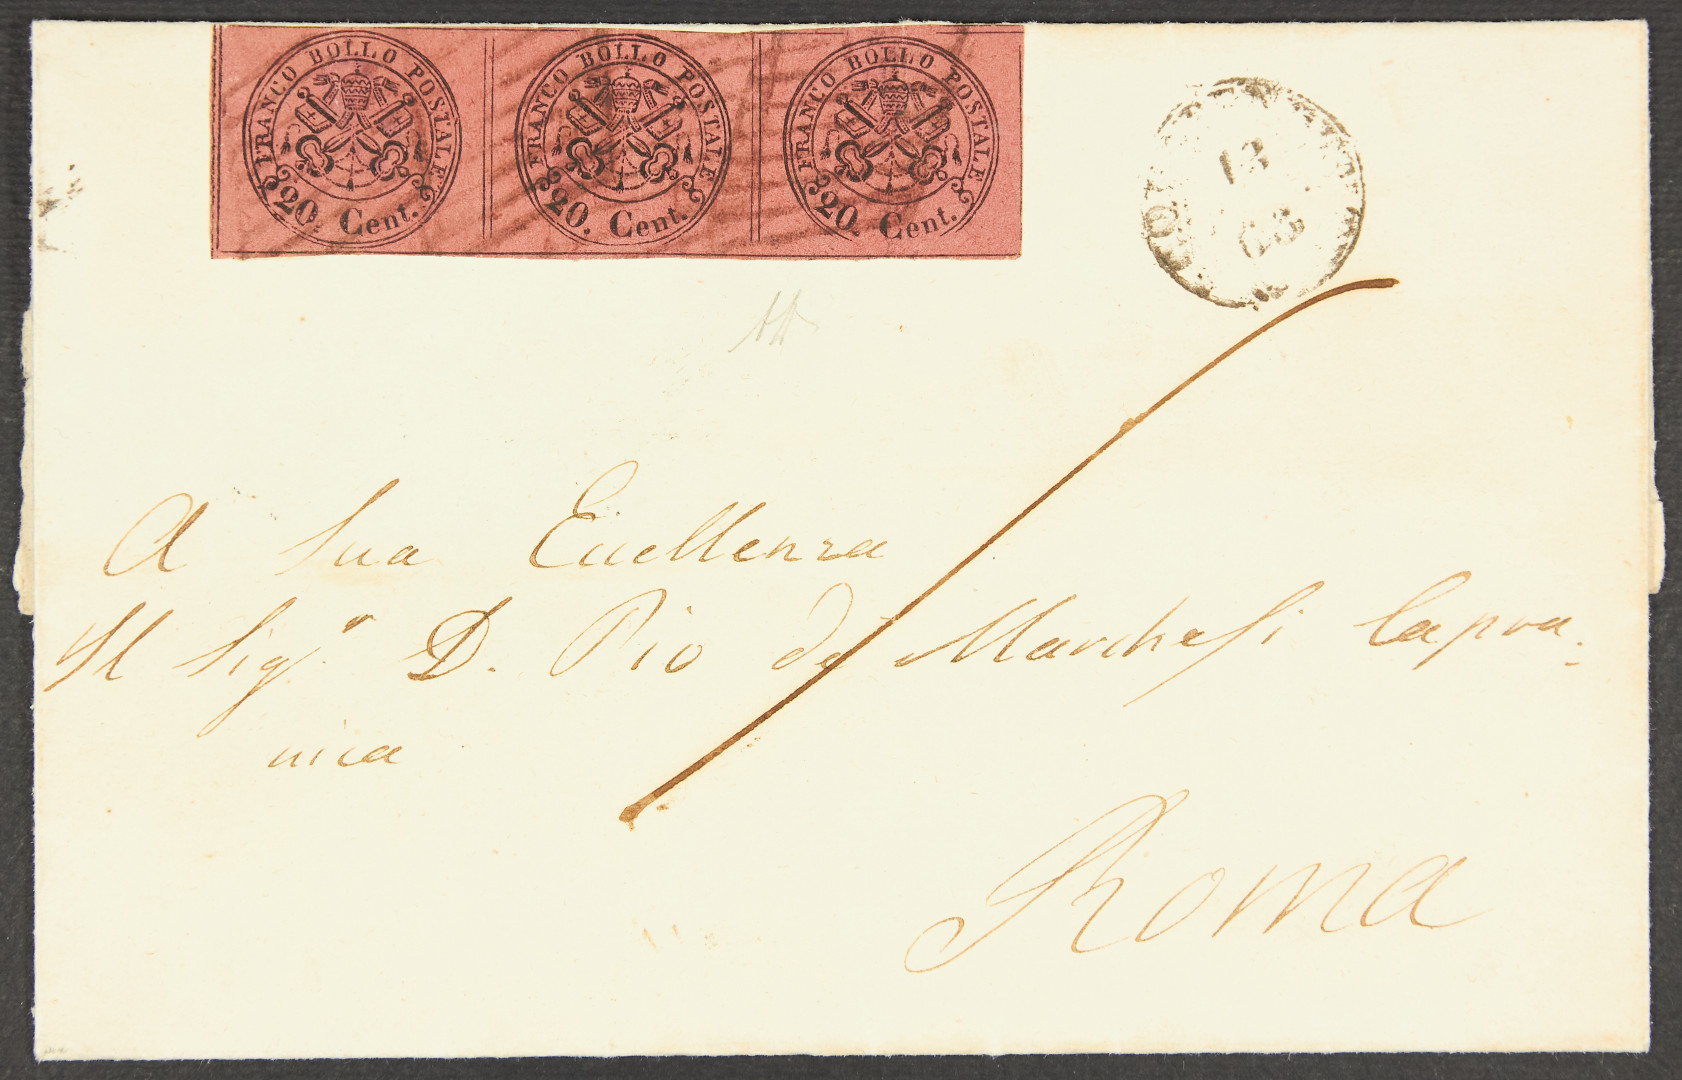 FRANCO BOLLO POSTALE
20. Cent.
FRANCO BOLLO POSTALE
20. Cent.
FRANCO BOLLO POSTALE
20. Cent.
13
A Sua Eccellenza
Il Sigr. D. Pio de Marchesi Capra:
nica
Roma